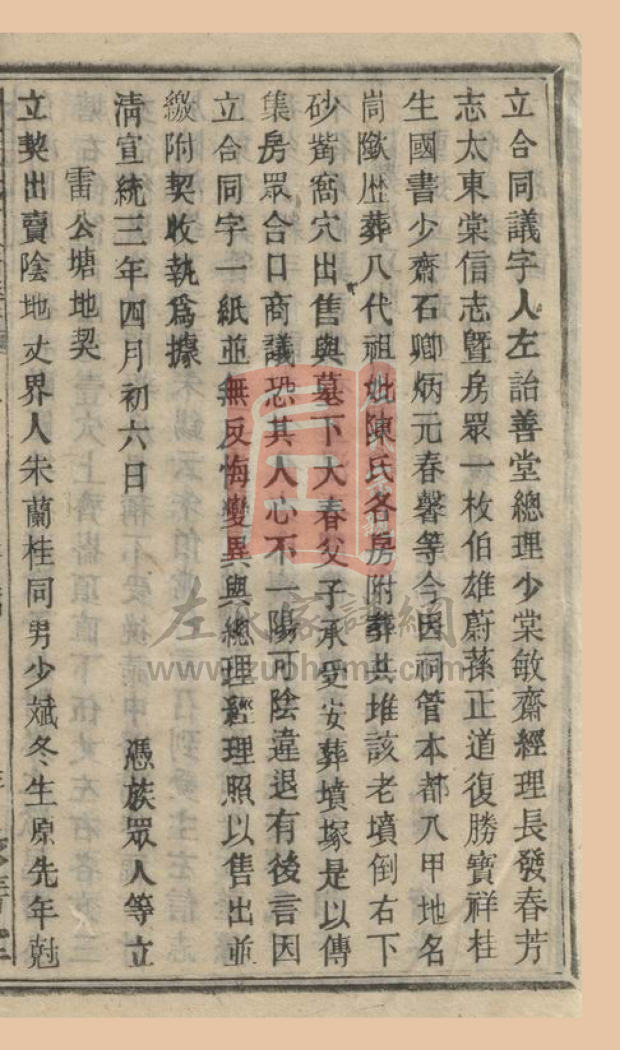 立合同議字人左詒善堂總理少棠敏齋經理長發春芳
志太東棠信志暨房眾一枚伯雄蔚蓀正道復勝寶祥桂
生國書少齋石卿炳元春馨等今因祠管本都八甲地名
峝㱃歷葬八代祖妣陳氏各房附葬共堆該老墳倒右下
砂觜窩穴出售與墓下大春父子承受安葬墳塚是以傳
集房眾合口商議恐其人心不一陽可陰違退有後言因
立合同字一紙並無反悔變異與總理經理照以售出並
繳附契收執爲據
清宣統三年四月初六日 憑族眾人等立
雷公塘地契
立契出賣陰地丈界人朱蘭桂同男少斌冬生原先年尅
左氏家譜網
www.zuohome.com